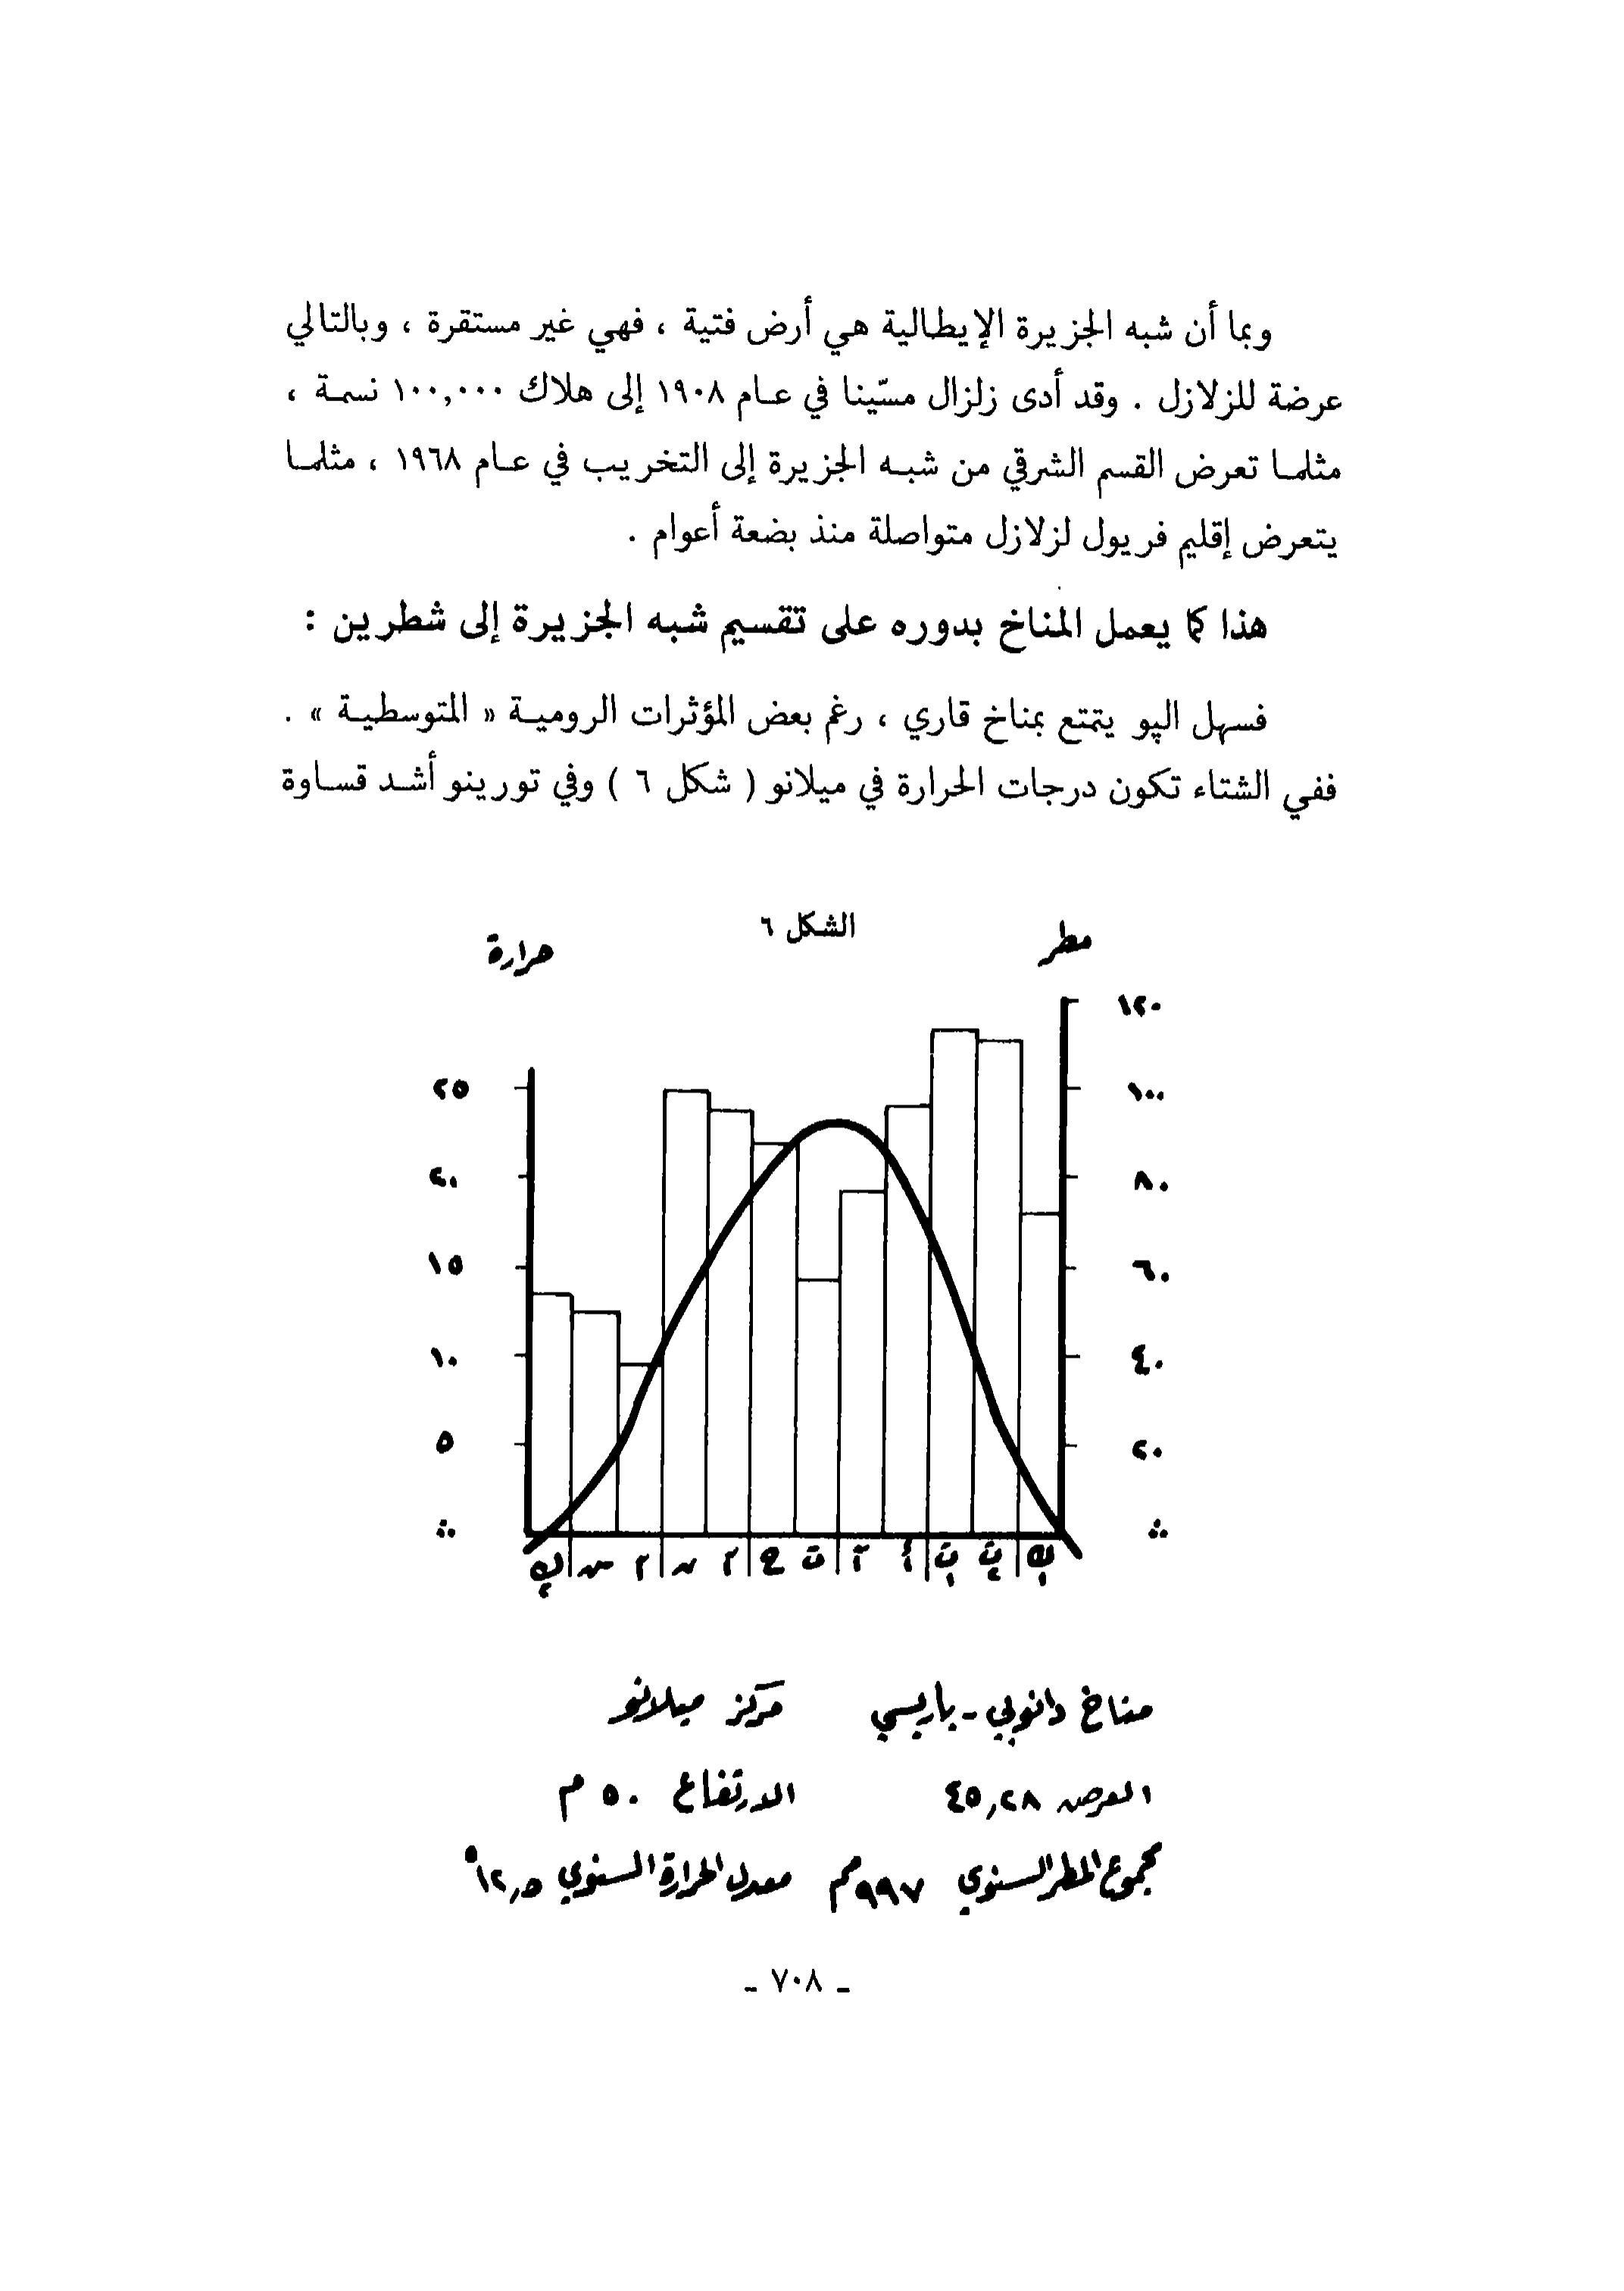 وبما أن شبه الجزيرة الإيطالية هي أرض فتية ، فهي غير مستقرة ، وبالتالي
عرضة للزلازل . وقد أدى زلزال مسّينا في عـام ١٩٠٨ إلى هلاك ١٠٠,٠٠٠ نسمـة ،
مثلمـا تعرض القسم الشرقي من شبـه الجزيرة إلى التخريب في عـام ١٩٦٨ ، مثلمـا
يتعرض إقليم فريول لزلازل متواصلة منذ بضعة أعوام .
هذا كما يعمل المناخ بدوره على تقسيم شبه الجزيرة إلى شطرين :
فسهل الپو يتمتع بمناخ قاري ، رغم بعض المؤثرات الروميـة « المتوسطيـة » .
ففي الشتاء تكون درجات الحرارة في ميلانو ( شكل ٦ ) وفي تورينو أشـد قسـاوة
الشكل ٦
مطر
حرارة
١٢٠
٢٥ ١٠٠
٢٠ ٨٠
١٥ ٦٠
١٠ ٤٠
٥ ٢٠
ك٢ س م ن م ح ت آ أ ت١ ت٢ ك١
مناخ دانوبي - باريسي مركز ميلانو
العرض ٤٥,٢٨ الارتفاع ٥٠ م
مجموع المطر السنوي ٩٩٧ مم معدل الحرارة السنوي ١٢,٥°
ـ ٧٠٨ ـ